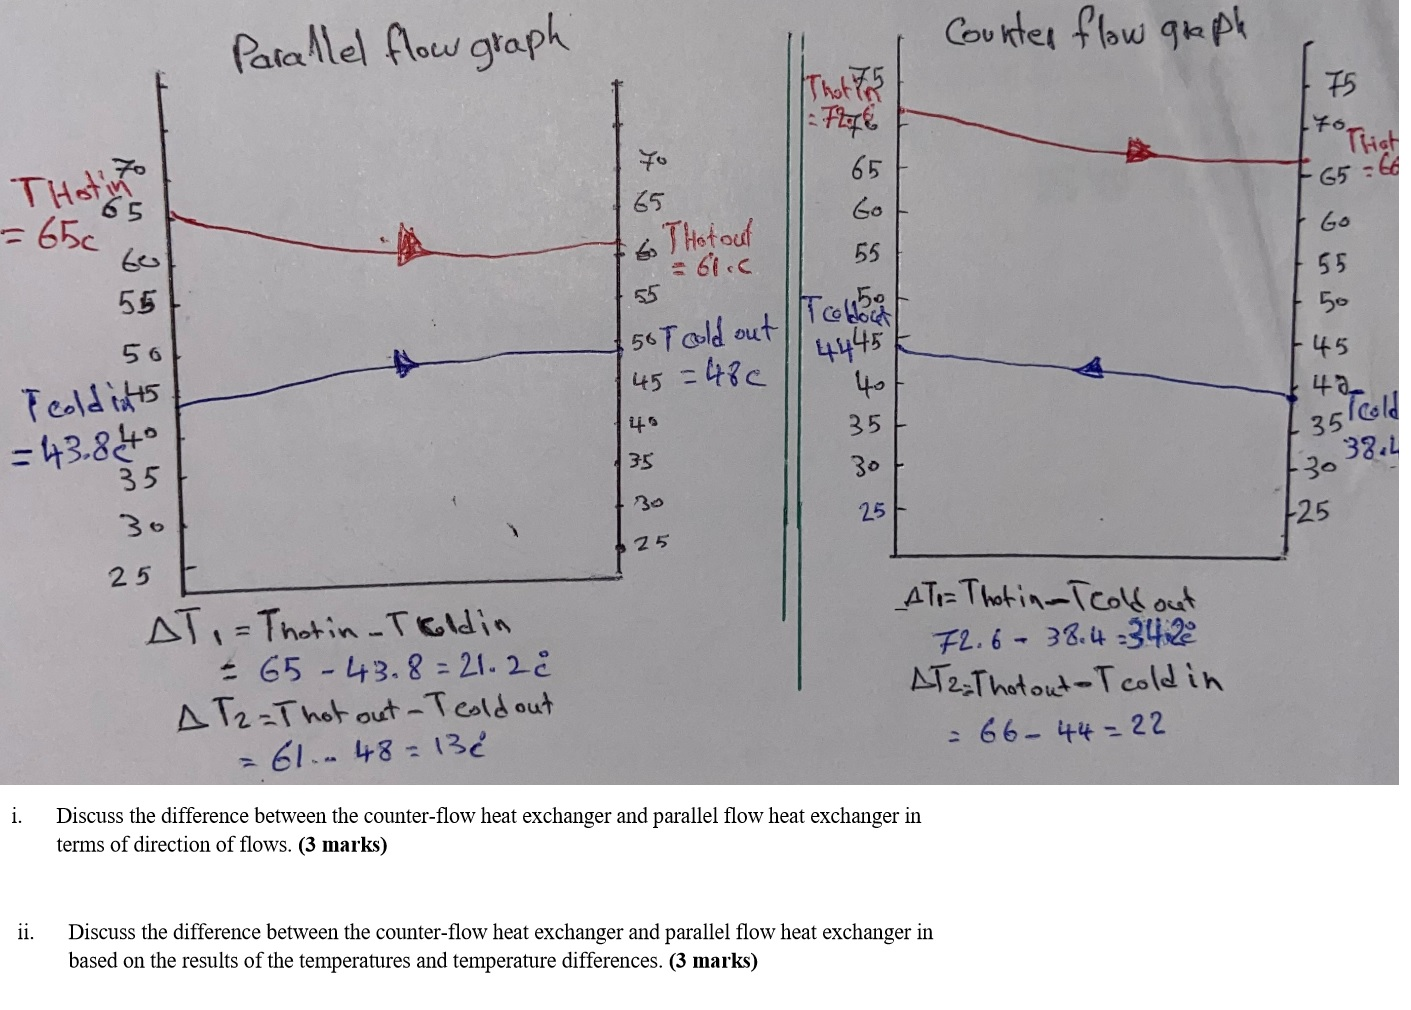 Parallel flow graph
70
THotin
65
= 65c
60
55
50
Tcoldin
45
= 43.8c
40
35
30
25
70
65
60
THotout
= 61.c
55
50
Tcold out
45
= 48c
40
35
30
25
ΔT1 = Thotin - Tcoldin
= 65 - 43.8 = 21.2c
ΔT2 = Thot out - Tcoldout
= 61... 48 = 13c
Counter flow graph
75
Thotin
= 72.6
65
60
55
50
Tcoldout
44
45
40
35
30
25
75
70
Thot
65
= 66
60
55
50
45
40
Tcold
35
38.4
30
25
ΔT1 = Thotin - Tcold out
72.6 - 38.4 = 34.2c
ΔT2 = Thotout - Tcold in
= 66 - 44 = 22
i. Discuss the difference between the counter-flow heat exchanger and parallel flow heat exchanger in
terms of direction of flows. (3 marks)
ii. Discuss the difference between the counter-flow heat exchanger and parallel flow heat exchanger in
based on the results of the temperatures and temperature differences. (3 marks)